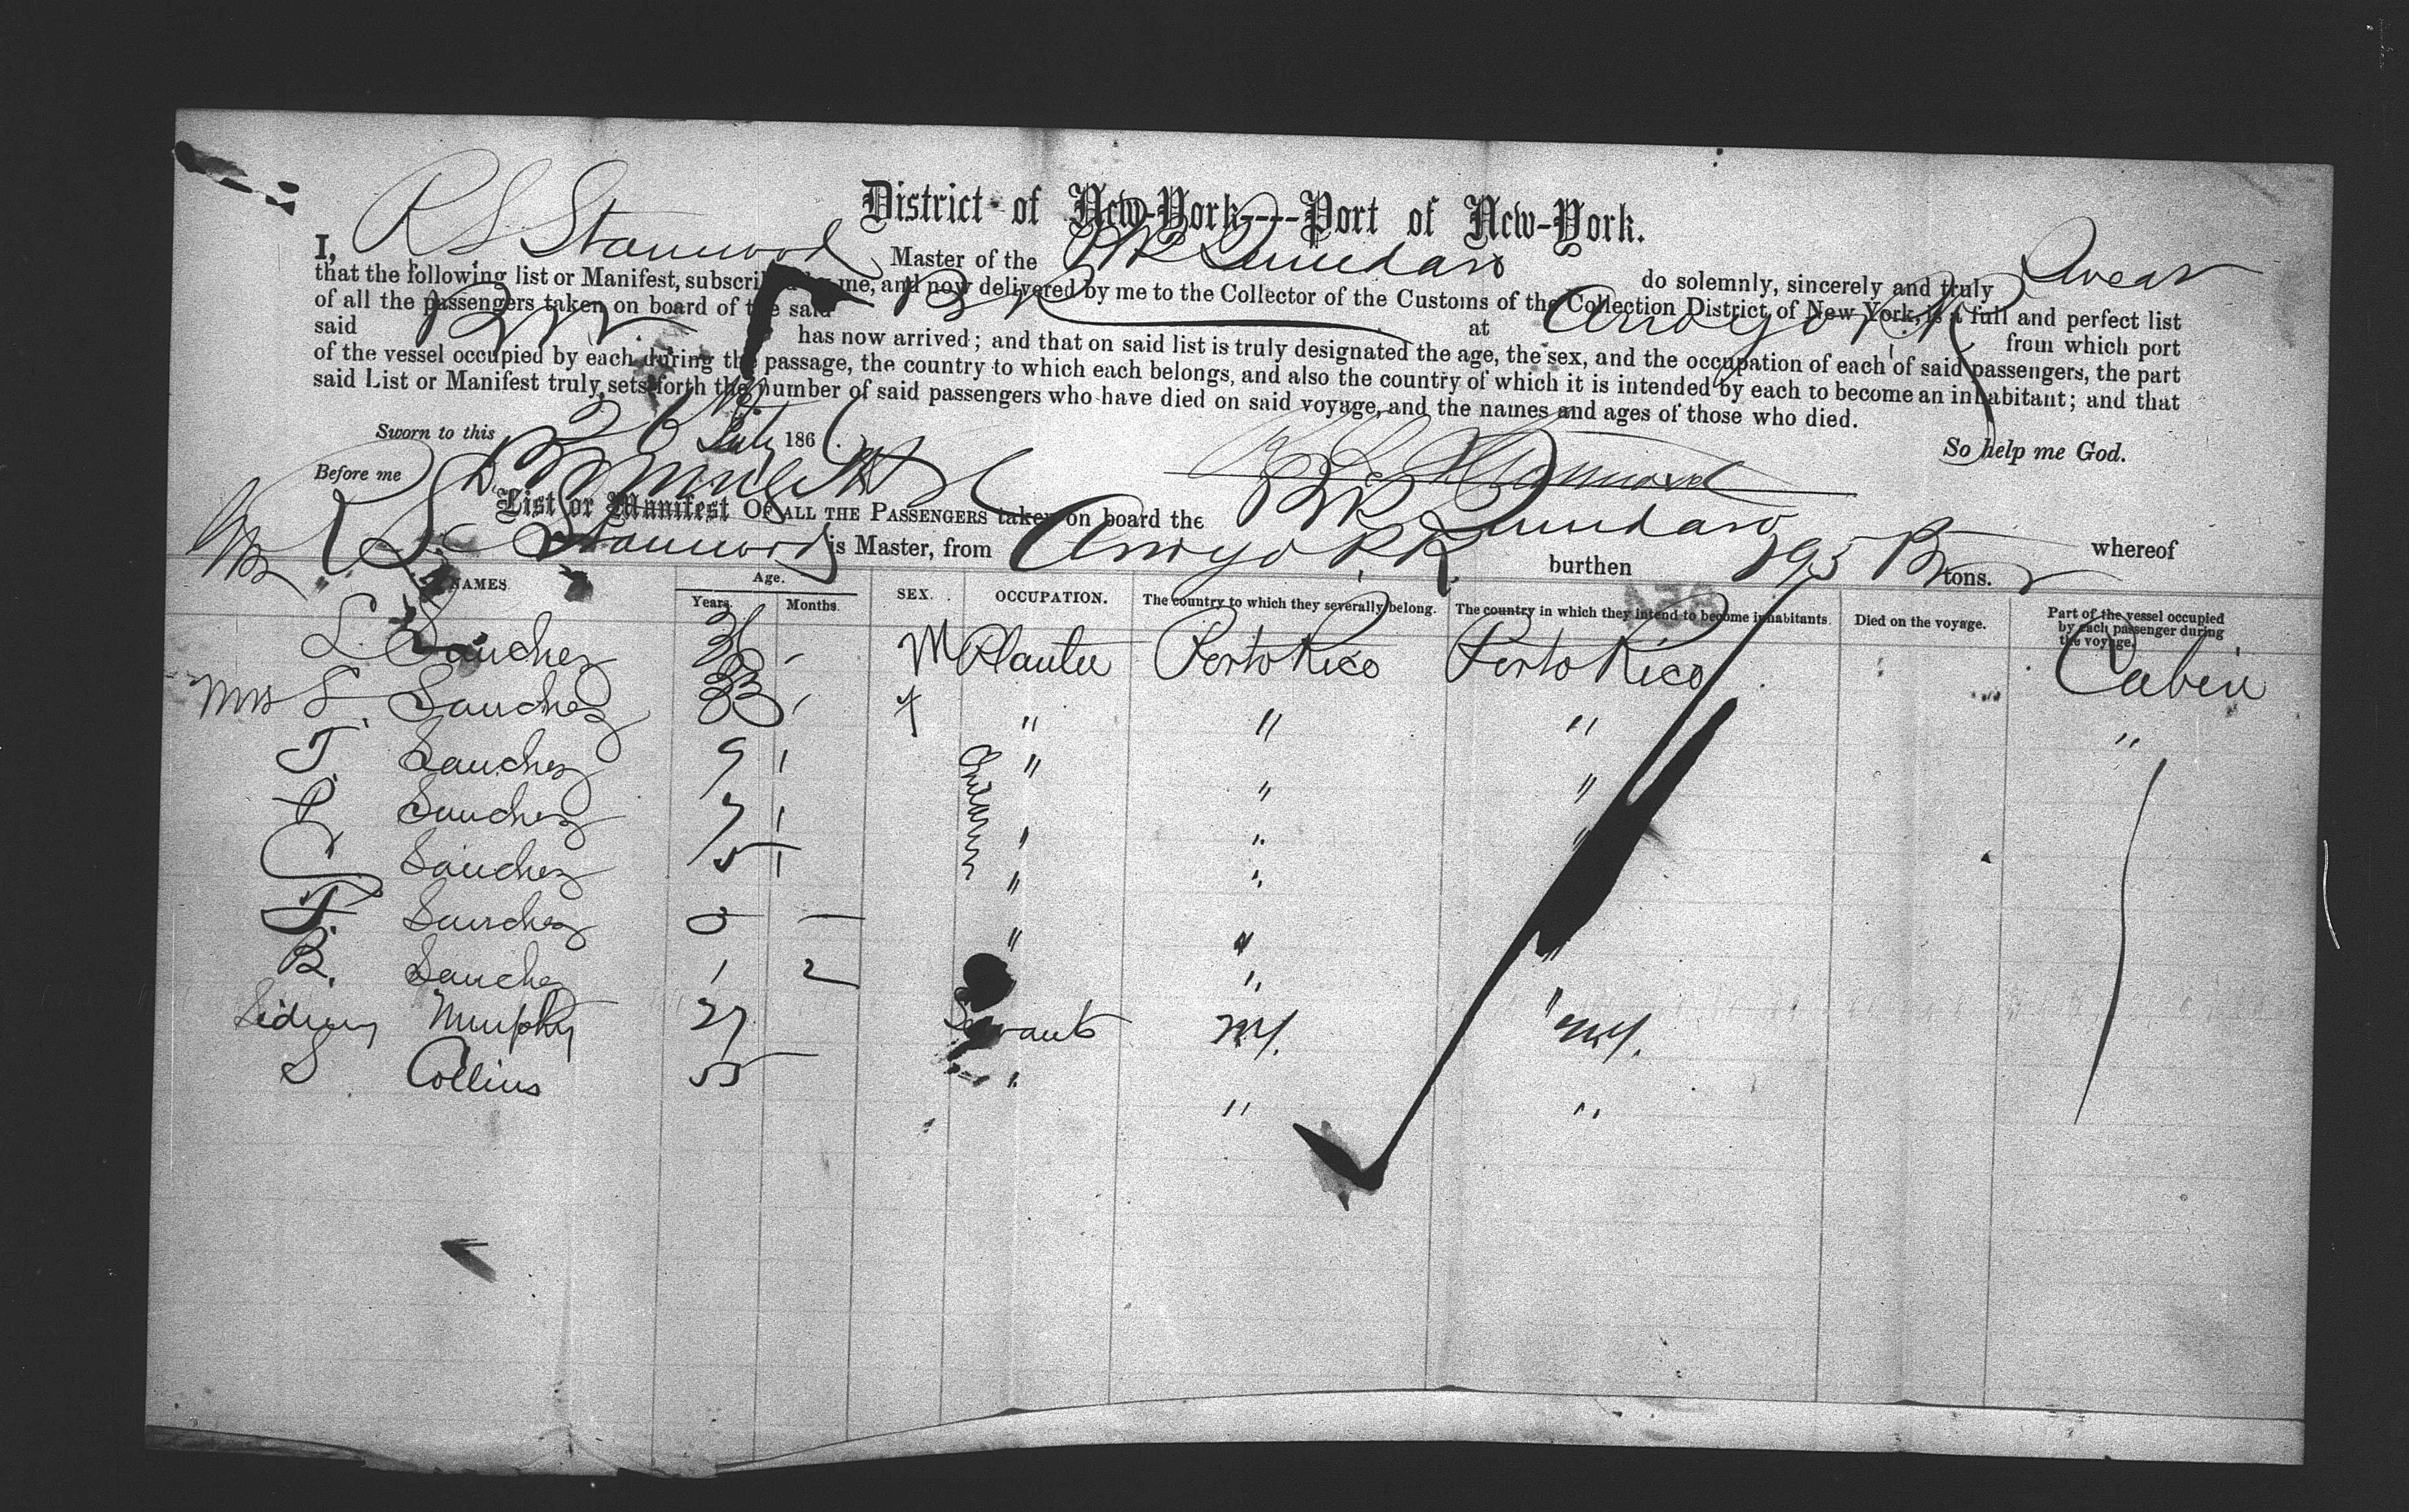 District of New-York---Port of New-York.
I, R S Stanwood Master of the do solemnly, sincerely and truly Swear
that the following list or Manifest, subscribed by me, and now delivered by me to the Collector of the Customs of the Collection District of New York, is a full and perfect list
of all the passengers taken on board of the said at Arroyo P.R from which port
said has now arrived; and that on said list is truly designated the age, the sex, and the occupation of each of said passengers, the part
of the vessel occupied by each during the passage, the country to which each belongs, and also the country of which it is intended by each to become an inhabitant; and that
said List or Manifest truly sets forth the number of said passengers who have died on said voyage, and the names and ages of those who died.
So help me God.
Sworn to this July 186
Before me R S Stanwood
List or Manifest OF ALL THE PASSENGERS taken on board the whereof
R S Stanwood is Master, from Arroyo P.R. burthen 295 tons.
NAMES. Age. Years. Months. SEX. OCCUPATION. The country to which they severally belong. The country in which they intend to become inhabitants. Died on the voyage. Part of the vessel occupied by each passenger during the voyage.
L. Sanchez M Planter Porto Rico Porto Rico Cabin
Mrs S Sanchez 33 f " " " "
T. Sanchez 9 " " "
P Sanchez 7 " " "
Sanchez 5 " "
F. Sanchez 3 — " " "
B. Sanchez 1 2 "
Sidney Murphy 27 Servants NY. " NY.
S Collins 55 " " "